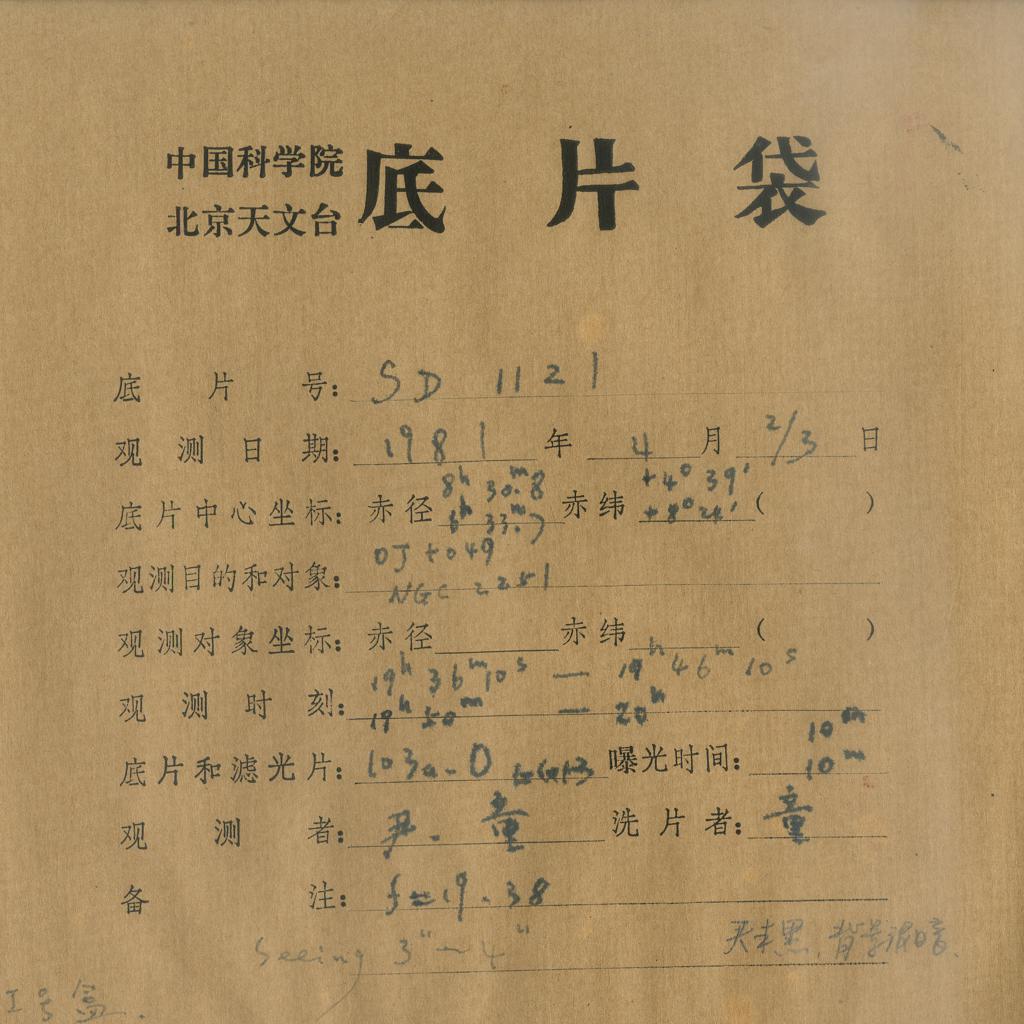 中国科学院
北京天文台
底片袋
底片号: SD 1121
观测日期: 1981 年 4 月 2/3 日
8h 30m.8 +4° 39′
底片中心坐标: 赤径 6h 33m.7 赤纬 +8° 24′ ( )
OJ+049
观测目的和对象: NGC 2251
观测对象坐标: 赤径 赤纬 ( )
19h 36m 10s — 19h 46m 10s
观测时刻: 19h 50m — 20h
10m
底片和滤光片: 103a-O GG13 曝光时间: 10m
观测者: 尹. 童 洗片者: 童
备注: f=19.38
Seeing 3″~4″
天未黑, 背景很暗.
工号盒.